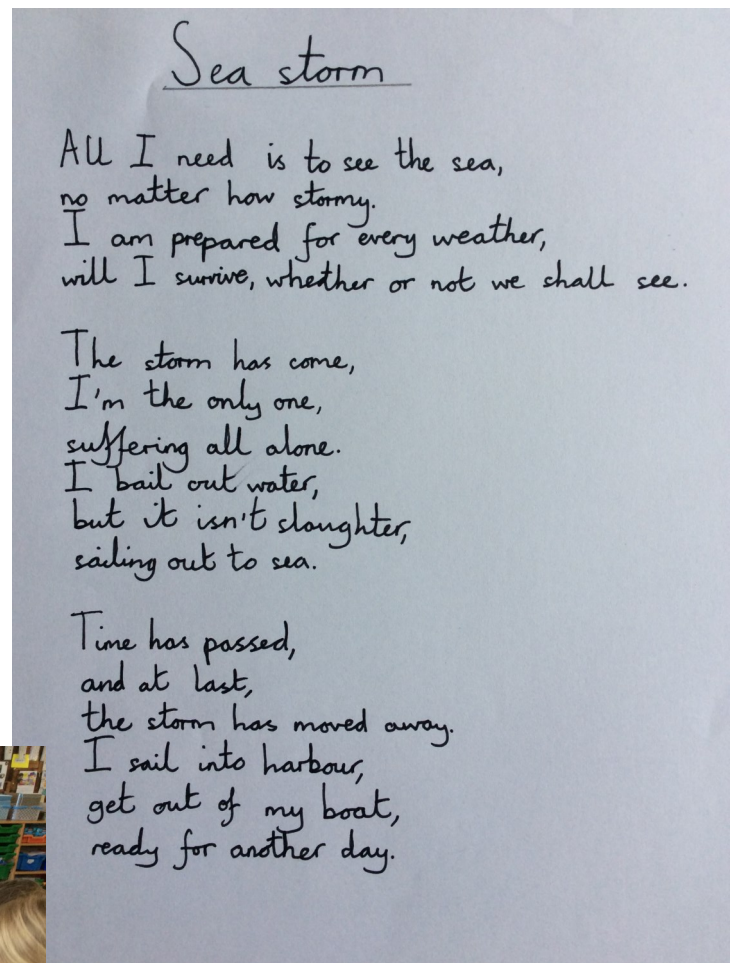 Sea storm
All I need is to see the sea,
no matter how stormy.
I am prepared for every weather,
will I survive, whether or not we shall see.
The storm has come,
I'm the only one,
suffering all alone.
I bail out water,
but it isn't slaughter,
sailing out to sea.
Time has passed,
and at last,
the storm has moved away.
I sail into harbour,
get out of my boat,
ready for another day.